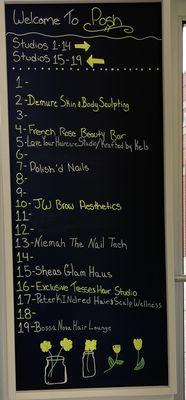 Welcome To Posh
Studios 1-14
Studios 15-19
1-
2- Demure Skin & Body Sculpting
3-
4- French Rose Beauty Bar
5- Love Your Haircare Studio/Krafted by Kels
6-
7- Polish'd Nails
8-
9-
10- JW Brow Aesthetics
11-
12-
13- Niemah The Nail Tech
14-
15- Sheas Glam Haus
16- Exclusive Tresses Hair Studio
17- PeterKINdred Hair & Scalp Wellness
18-
19- Bossa Nova Hair Lounge